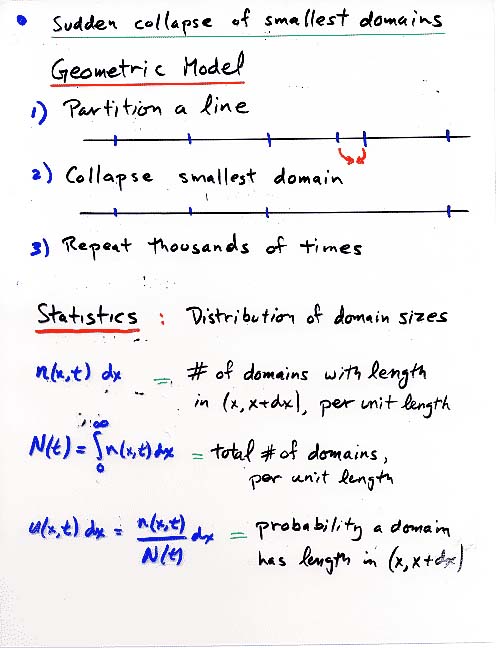 • Sudden collapse of smallest domains
Geometric Model
1) Partition a line
2) Collapse smallest domain
3) Repeat thousands of times
Statistics : Distribution of domain sizes
n(x,t) dx = # of domains with length
in (x, x+dx), per unit length
N(t) = ∫₀^∞ n(x,t) dx = total # of domains,
per unit length
u(x,t) dx = n(x,t)/N(t) dx = probability a domain
has length in (x, x+dx)